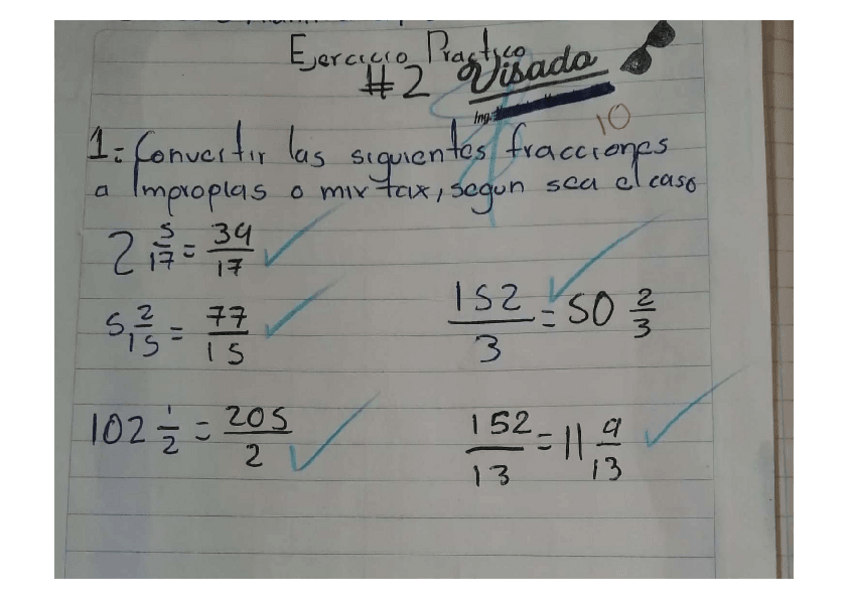 Ejercicio Practico
#2 Visado
Ing.
10
1= Convertir las siguientes fracciones
a Impropias o mixtax, segun sea el caso
2 5/17 = 39/17
5 2/15 = 77/15
152/3 = 50 2/3
102 1/2 = 205/2
152/13 = 11 9/13